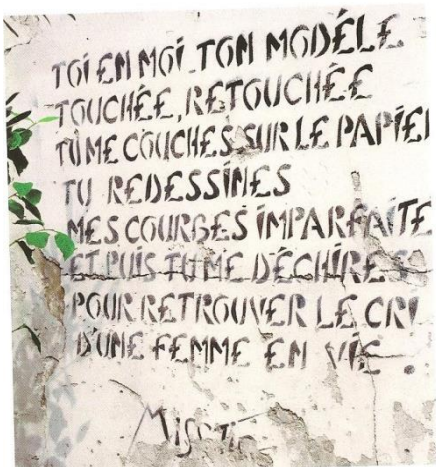 TOI EN MOI. TON MODÉLE
TOUCHÉE, RETOUCHÉE
TU ME COUCHES SUR LE PAPIE
TU REDESSINES
MES COURBES IMPARFAITE
ET PUIS TU ME DÉCHIRES
POUR RETROUVER LE CRI
D'UNE FEMME EN VIE.
Misstic